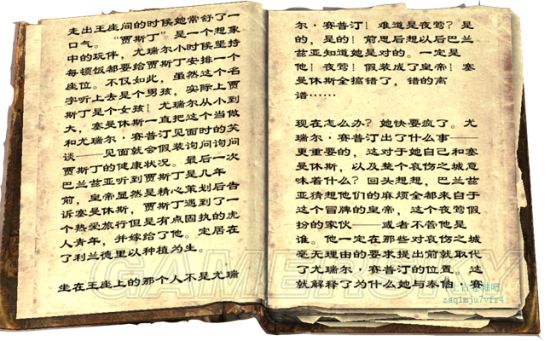 走出王座间的时候她常舒了一
口气。“贾斯丁”是一个想象
中的玩伴，尤瑞尔小时候坚持
每顿饭都要给贾斯丁安排一个
座位。不仅如此，虽然这个名
字听上去是个男孩，实际上贾
斯丁是个女孩！尤瑞尔从小到
大，塞曼休斯一直把这个当做
和尤瑞尔·赛普汀见面时的笑
谈——见面就会假装问问询问
贾斯丁的健康状况。最后一次
巴兰兹亚听到贾斯丁是几年
前，皇帝显然是精心策划后告
诉塞曼休斯，贾斯丁遇到了一
个热爱旅行但是有点固执的虎
人青年，并嫁给了他。定居在
了利兰德里以种植为生。
坐在王座上的那个人不是尤瑞
尔·赛普汀！难道是夜莺？是
的，是的！前思后想以后巴兰
兹亚知道她是对的。一定是
他！夜莺！假装成了皇帝！塞
曼休斯全搞错了，错的离
谱……
现在怎么办？她快要疯了。尤
瑞尔·赛普汀出了什么事——
更重要的，这对于她自己和塞
曼休斯，以及整个哀伤之城意
味着什么？回头想想，巴兰兹
亚猜想他们的麻烦全都来自于
这个冒牌的皇帝，这个夜莺假
扮的家伙——或者不管他是
谁。他一定在那些对哀伤之城
毫无理由的要求提出前就取代
了尤瑞尔·赛普汀的位置。这
就解释了为什么她与泰伯·赛
GAMERSKY
zaqimju7vfr4